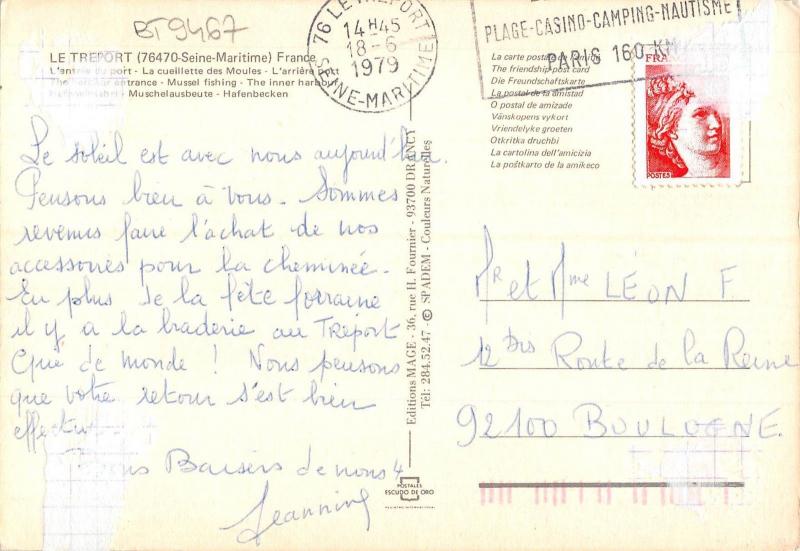 BT9467
LE TREPORT (76470-Seine-Maritime) France
L'entrée du port - La cueillette des Moules - L'arrière port
The harbour entrance - Mussel fishing - The inner harbour
Hafeneinfahrt - Muschelausbeute - Hafenbecken
Le soleil est avec nous aujourd'hui.
Pensons bien à vous. Sommes
revenus faire l'achat de nos
accessoires pour la cheminée.
En plus de la fête forraine
il y a la braderie au Tréport
Que de monde ! Nous pensons
que votre retour s'est bien
effectué
Bons Baisers de nous 4
Jeannine
76 LE TREPORT
14H45
18-6
1979
SEINE-MARITIME
PLAGE-CASINO-CAMPING-NAUTISME
PARIS 160 KM
Editions MAGE - 36, rue H. Fournier - 93700 DRANCY
Tél: 284.52.47 - © SPADEM - Couleurs Naturelles
POSTALES
ESCUDO DE ORO
La carte postale de l'amitié
The friendship post card
Die Freundschaftskarte
La postal de la amistad
O postal de amizade
Vänskopens vykort
Vriendelyke groeten
Otkritka druchbi
La cartolina dell'amicizia
La poŝtkarto de la amikeco
FRANCE
POSTES
Mr et Mme LÉON F
12 bis Route de la Reine
92100 BOULOGNE